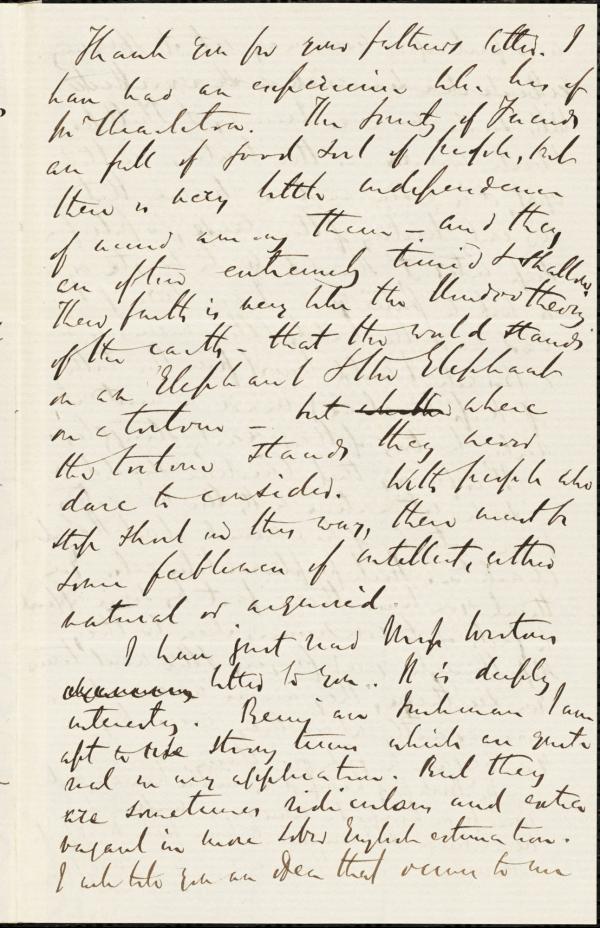 Thank you for your fathers letter. I
have had an experience like his of
Mr Charleton. The Society of Friends
are full of good sort of people, but
there is very little independence
of mind among them – and they
are often extremely timid & shallow.
Their faith is very like the Hindoo theory
of the earth – that the world stands
on an Elephant & the Elephant
on a tortoise – but where
the tortoise stands they never
dare to consider. With people who
stop short in this way, there must be
some feebleness of intellect, either
natural or acquired.
I have just read Miss
letter to you. It is deeply
interesting. Being an Irishman I am
apt to use strong terms which are quite
real in my application. But they
are sometimes ridiculous and extra
vagant in more sober English estimation.
I write to you an idea that occurs to me